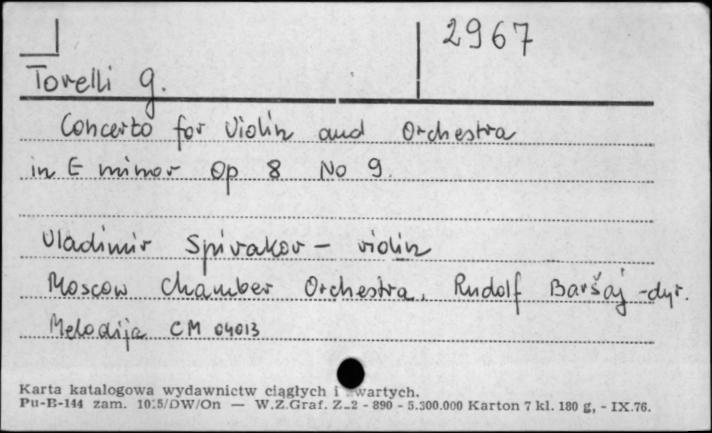 2967
Torelli G.
Concerto for Violin and Orchestra
in E minor Op 8 No 9
Vladimir Spivakov – violin
Moscow Chamber Orchestra, Rudolf Baršaj - dyr.
Melodija CM 04013
Karta katalogowa wydawnictw ciągłych i zwartych.
Pu-B-144 zam. /DW/On — W.Z.Graf. Z-2 - 890 - 5.300.000 Karton 7 kl. 180 g, - IX.76.